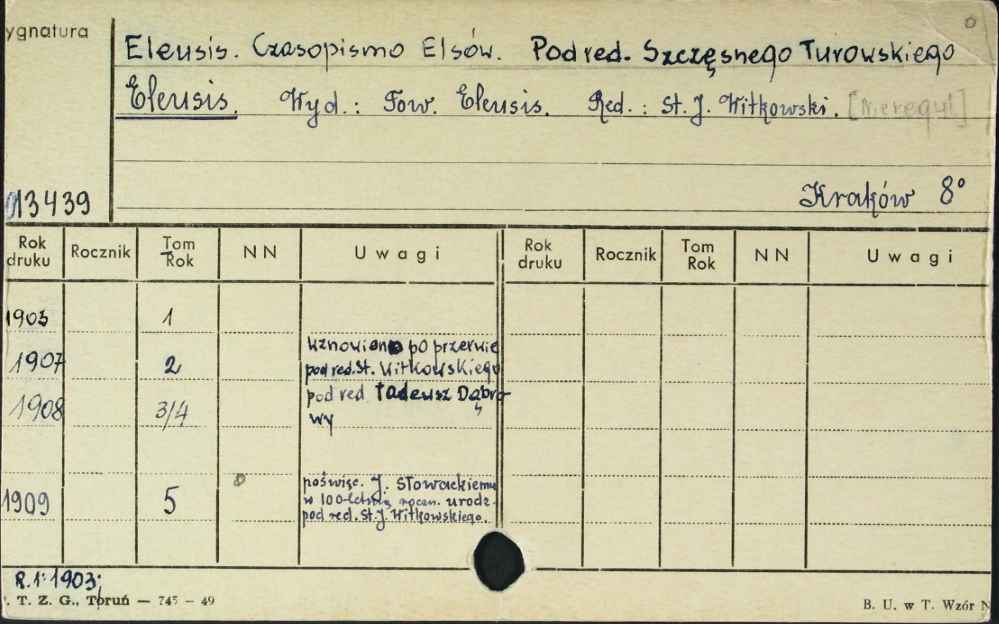 ygnatura
Eleusis. Czasopismo Elsów. Pod red. Szczęsnego Turowskiego
Eleusis. Wyd.: Tow. Eleusis. Red.: St. J. Witkowski. [Nieregul]
Kraków 8°
013439
Rok druku Rocznik Tom Rok NN Uwagi Rok druku Rocznik Tom Rok NN Uwagi
1903 1
1907 2 wznowiono po przerwie
pod red. St. Witkowskiego
1908 3/4 pod red Tadeusz Dąbro-
wy
1909 5 poświęc. J. Słowackiemu
w 100-letnią roczn. urodz.
pod red. St. J. Witkowskiego.
R. 1: 1903;
. T. Z. G., Toruń — 745 — 49
B. U. w T. Wzór N